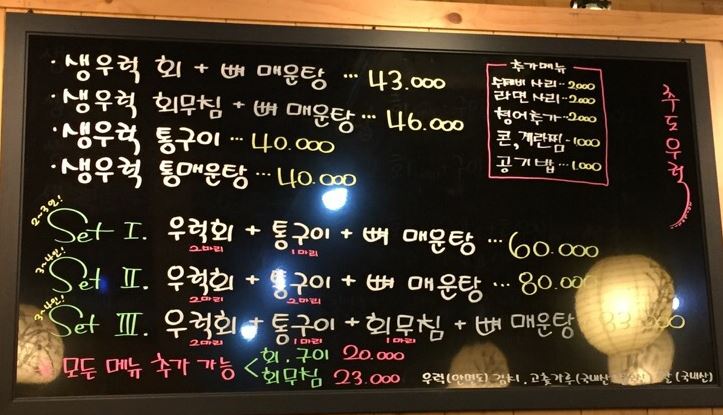 · 생우럭 회 + 뼈 매운탕 ··· 43.000
· 생우럭 회무침 + 뼈 매운탕 ··· 46.000
· 생우럭 통구이 ··· 40.000
· 생우럭 통매운탕 ··· 40.000
추가메뉴
수제비 사리 ·· 2.000
라면 사리 ·· 2.000
청어추가 ·· 2.000
콘, 계란찜 ·· 1.000
공기밥 ··· 1.000
추도우럭
2~3인!
Set I. 우럭회 + 통구이 + 뼈 매운탕 ··· 60.000
2마리 1마리
3~4인!
Set II. 우럭회 + 통구이 + 뼈 매운탕 ··· 80.000
2마리 2마리
3~4인!
Set III. 우럭회 + 통구이 + 회무침 + 뼈 매운탕 83.000
2마리 1마리 1마리
* 모든 메뉴 추가 가능 < 회. 구이 20.000
회무침 23.000
우럭(안면도) 김치. 고춧가루(국내산 쌀(국내산)